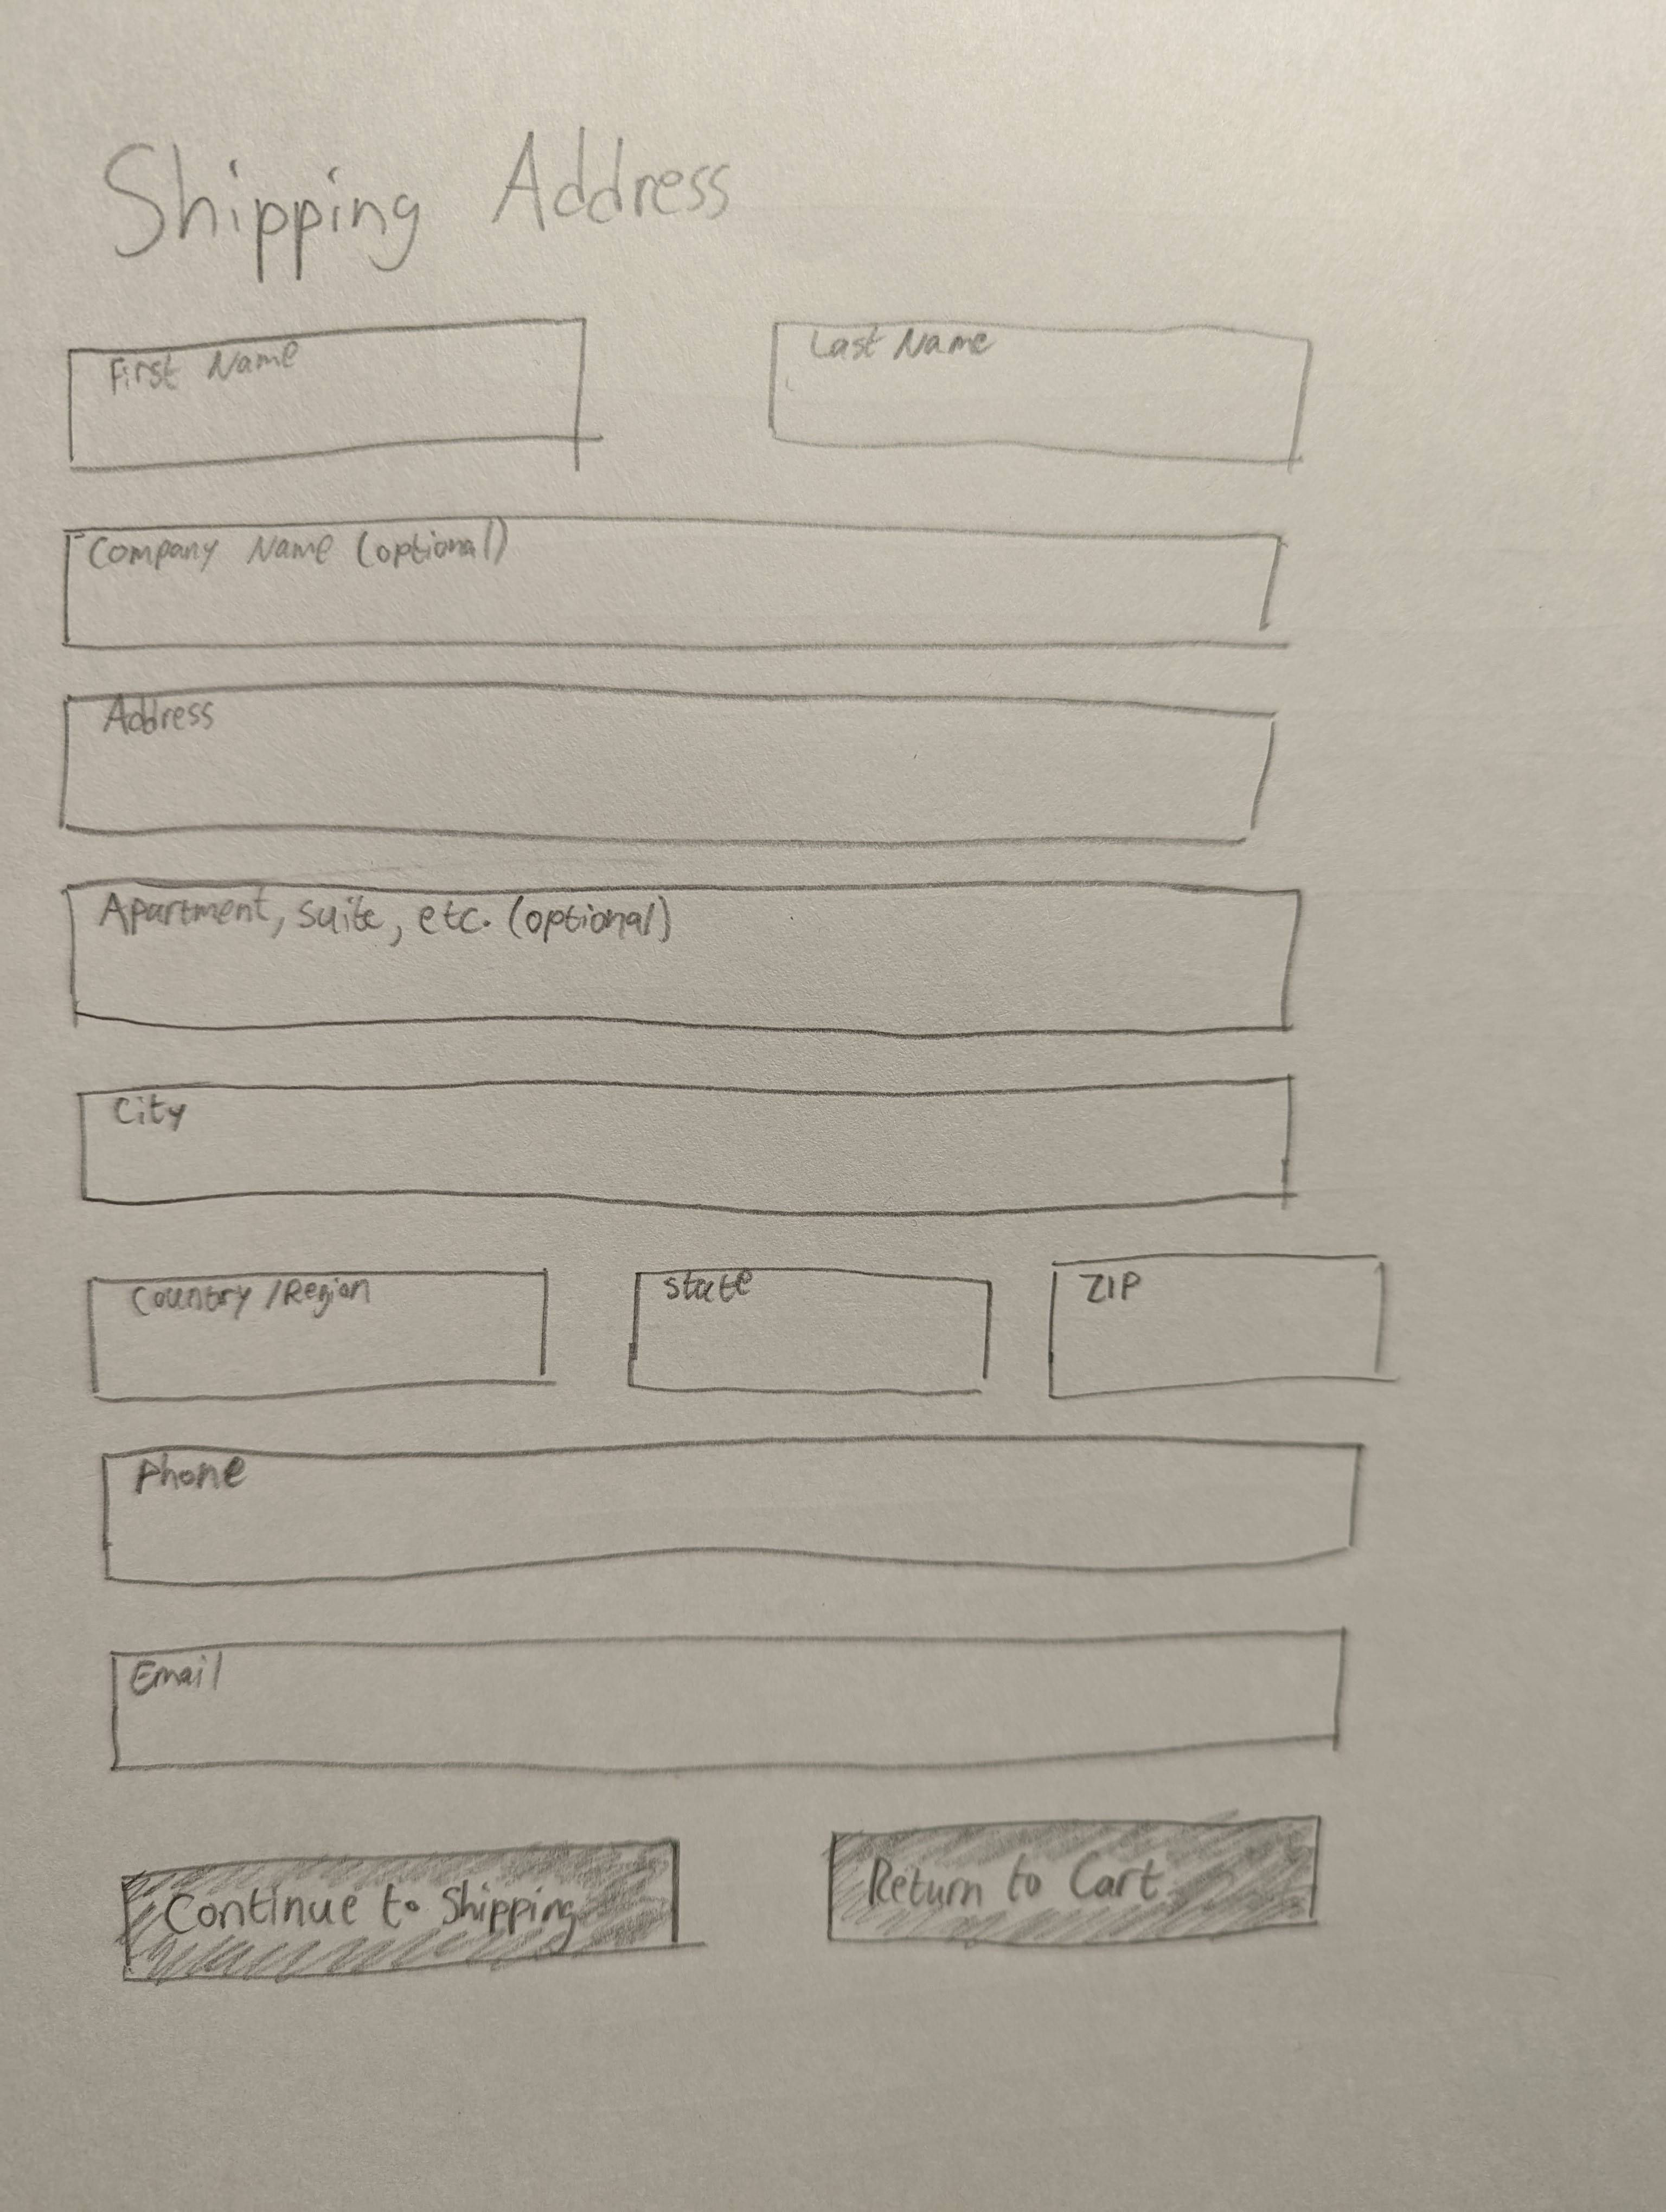 Shipping Address
First Name
Last Name
Company Name (optional)
Address
Apartment, suite, etc. (optional)
City
Country/Region
State
ZIP
Phone
Email
Continue to Shipping
Return to Cart